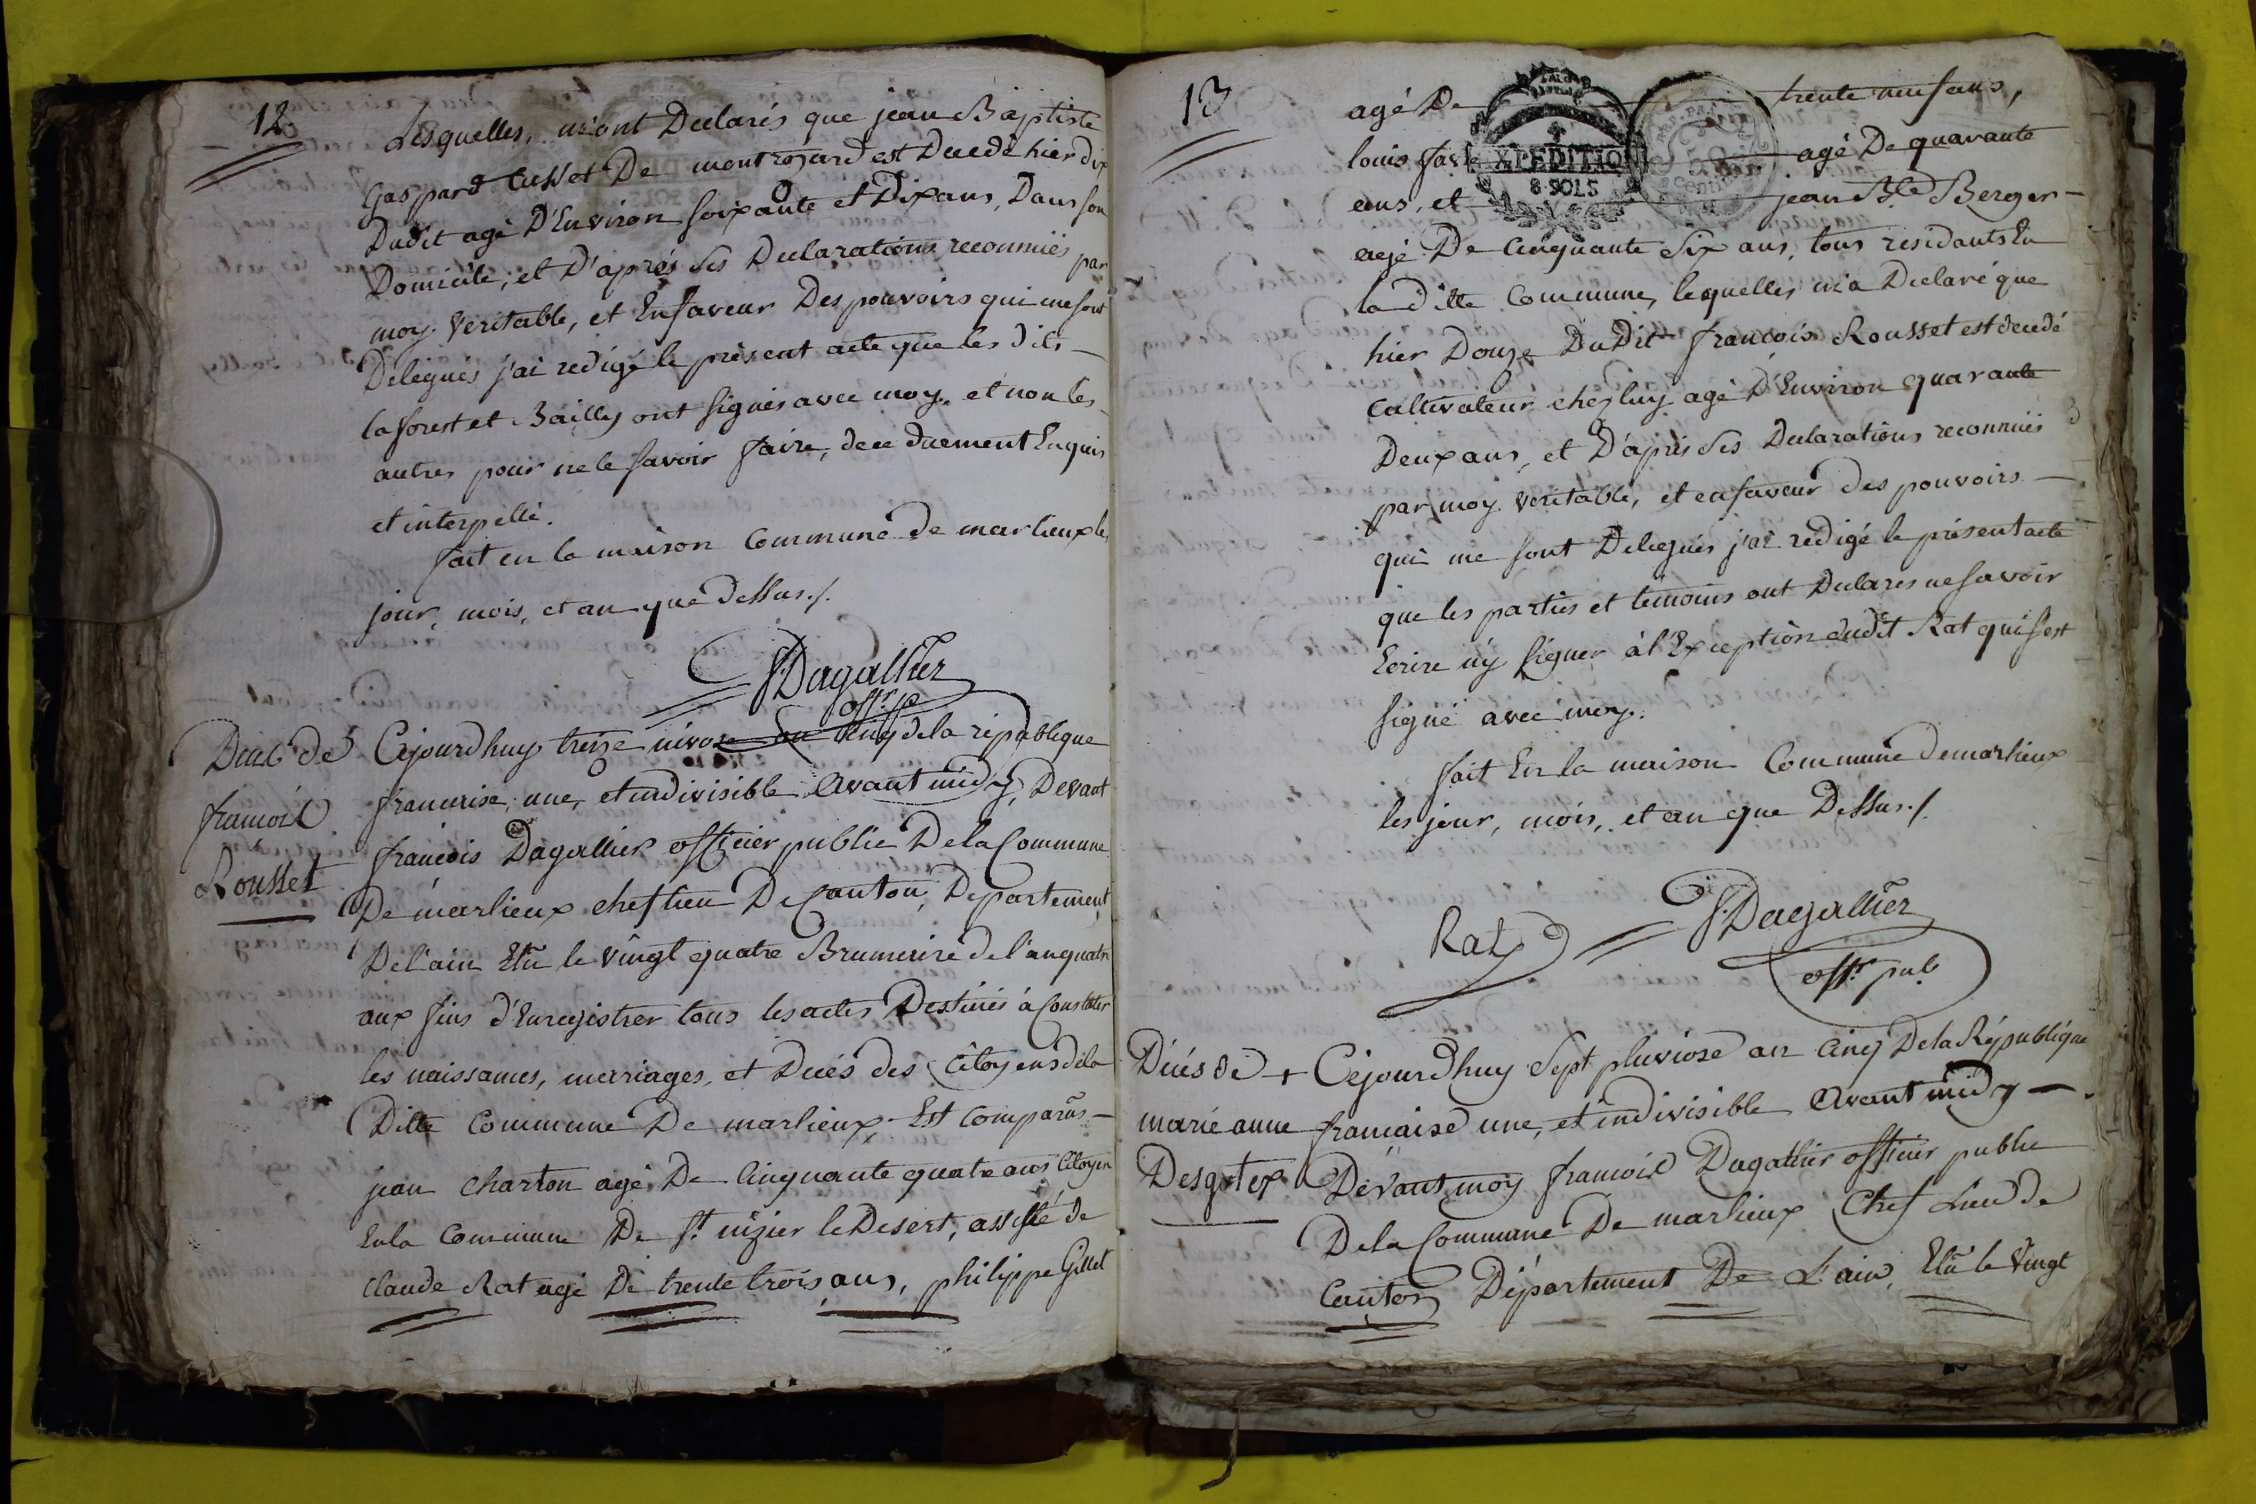 12
Lesquelles, m'ont Declarés que jean Baptiste
Gaspard Cusset De montrozard est Decedé hier dix
Dudit agé D'Environ soixante et Dix ans, Dans son
Domicile, et D'aprés ses Declarations reconnuës par
moy. veritable, et Enfaveur Des pouvoirs qui me sont
Delegués j'ai redigé le présent acte que les dits
laforest et Bailly ont signés avec moy. et non les
autres pour ne le savoir faire, de ce duement Enquis
et interpellé.
fait en la maison Commune de marlieux les
jour, mois, et an que Dessus./.
f. Dagallier
off. p.
Decés de
francois
Rousset
Cejourdhuy treize nivose an cinq de la republique
francaise, une, et indivisible avant midy, Devant
francois Dagallier officier public De la Commune
De marlieux chef lieu De Canton, Departement
De l'ain Elû le vingt quatre Brumaire de l'an quatre
aux fins d'Enregistrer tous les actes Destinés à Constater
les naissances, mariages, et Decés des Citoyens de la
Ditte Commune De marlieux Est comparûs
jean charton agé De Cinquante quatre ans Citoyen
En la Commune De St nizier le Desert, assisté de
claude Rat agé De trente trois ans, philippe Gillet
13
agé De trente neuf ans,
louis fav agé De quarante
ans, et jean Bte Berger
EXPEDITION
8 SOLS
agé De Cinquante six ans, tous residants En
la ditte Commune, lequelles m'a Declaré que
hier Douze Dudit francois Rousset est decedé
Cultivateur chez luy agé D'Environ quarante
Deux ans, et D'aprés ses Declarations reconnuës
par moy. veritable, et enfaveur des pouvoirs
qui me sont Delegués j'ai redigé le présent acte
que les parties et temoins ont Declarés ne savoir
Ecrire n'y signer à l'Exception dudit Rat qui s'est
signé avec moy.
fait En la maison Commune de marlieux
les jour, mois, et an que Dessus./.
Rat
f. Dagallier
offr. pub
Décés de
marie anne
Desgotex
+ Cejourdhuy Sept pluviose an Cinq De la République
francaise une, et indivisible avant midy
Devant moy francois Dagallier officier public
De la Commune De marlieux Chef Lieu de
Canton Département De L'ain, Elû le vingt